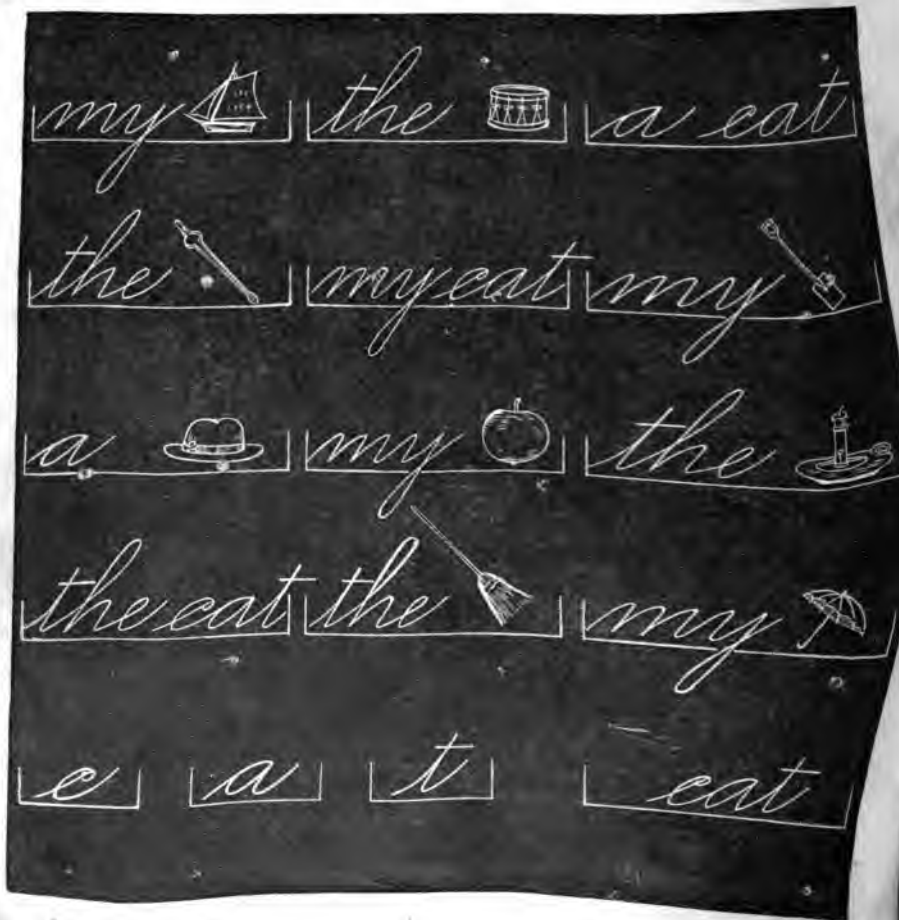 my the a cat
the my cat my
a my the
the cat the my
c a t cat